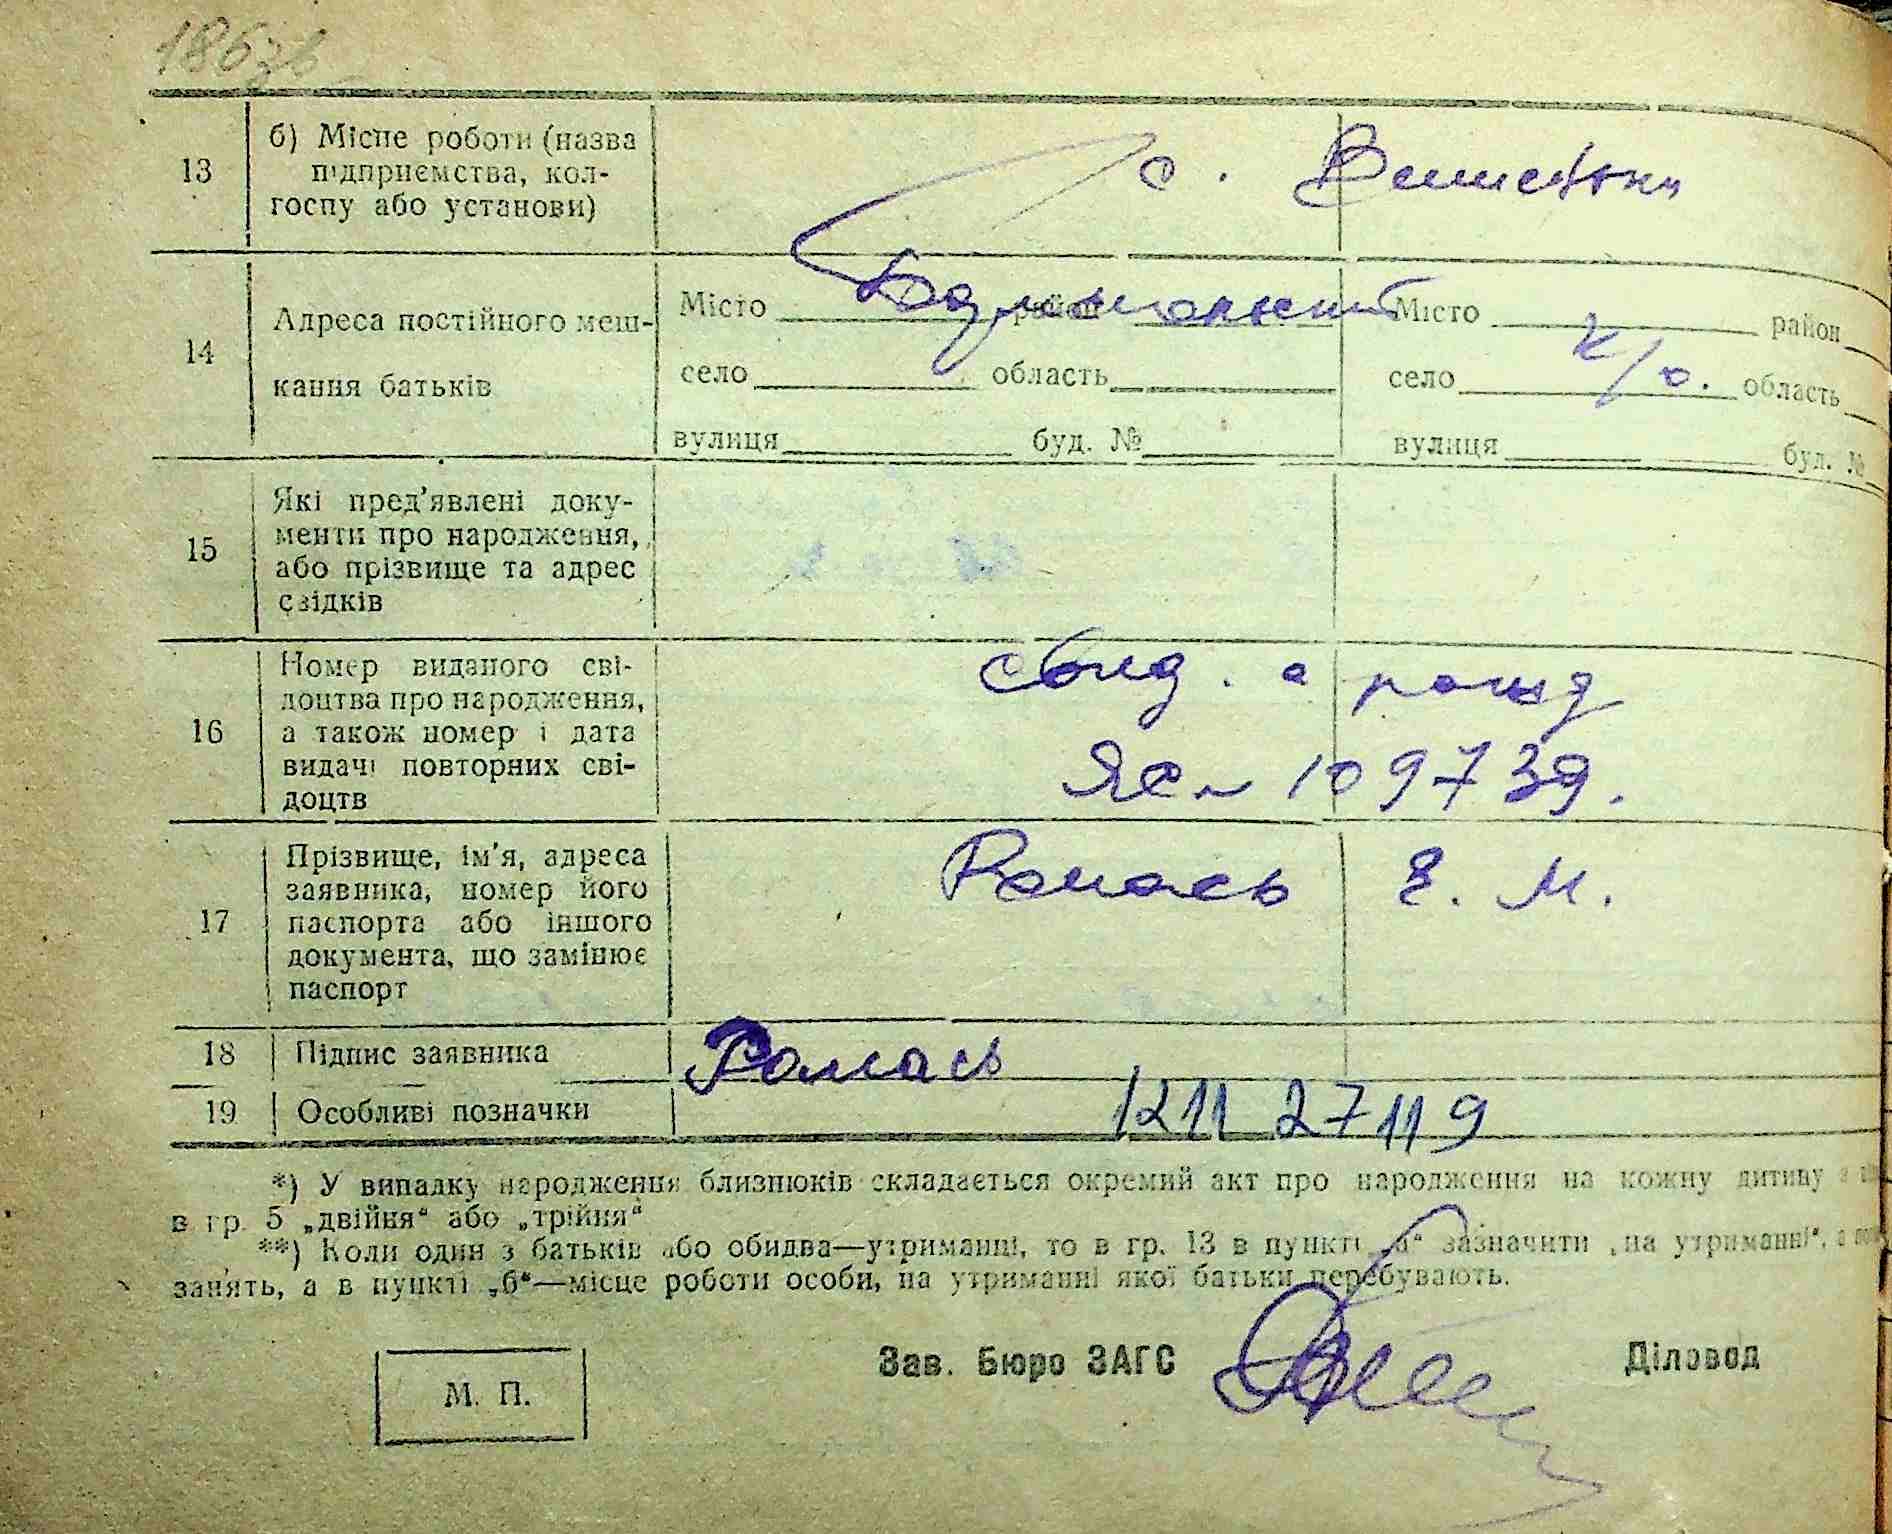 186зв
13
б) Місце роботи (назва
підприємства, кол-
госпу або установи)
с.
14
Адреса постійного меш-
кання батьків
Місто район
село область
вулиця буд. №
Місто район
село область
вулиця буд. №
к/о.
15
Які пред'явлені доку-
менти про народження,
або прізвище та адрес
свідків
16
Номер виданого сві-
доцтва про народження,
а також номер і дата
видачі повторних сві-
доцтв
свид. о рожд
109739.
17
Прізвище, ім'я, адреса
заявника, номер його
паспорта або іншого
документа, що замінює
паспорт
Ромась Е. М.
18
Підпис заявника
Ромась
19
Особливі позначки
1211 27119
*) У випадку народження близнюків складається окремий акт про народження на кожну дитину з
в гр. 5 „двійня“ або „трійня“
**) Коли один з батьків або обидва—утриманці, то в гр. 13 в пункті „а“ зазначити „на утриманні“, а
занять, а в пункті „б“—місце роботи особи, на утриманні якої батьки перебувають.
М. П.
Зав. Бюро ЗАГС
Діловод